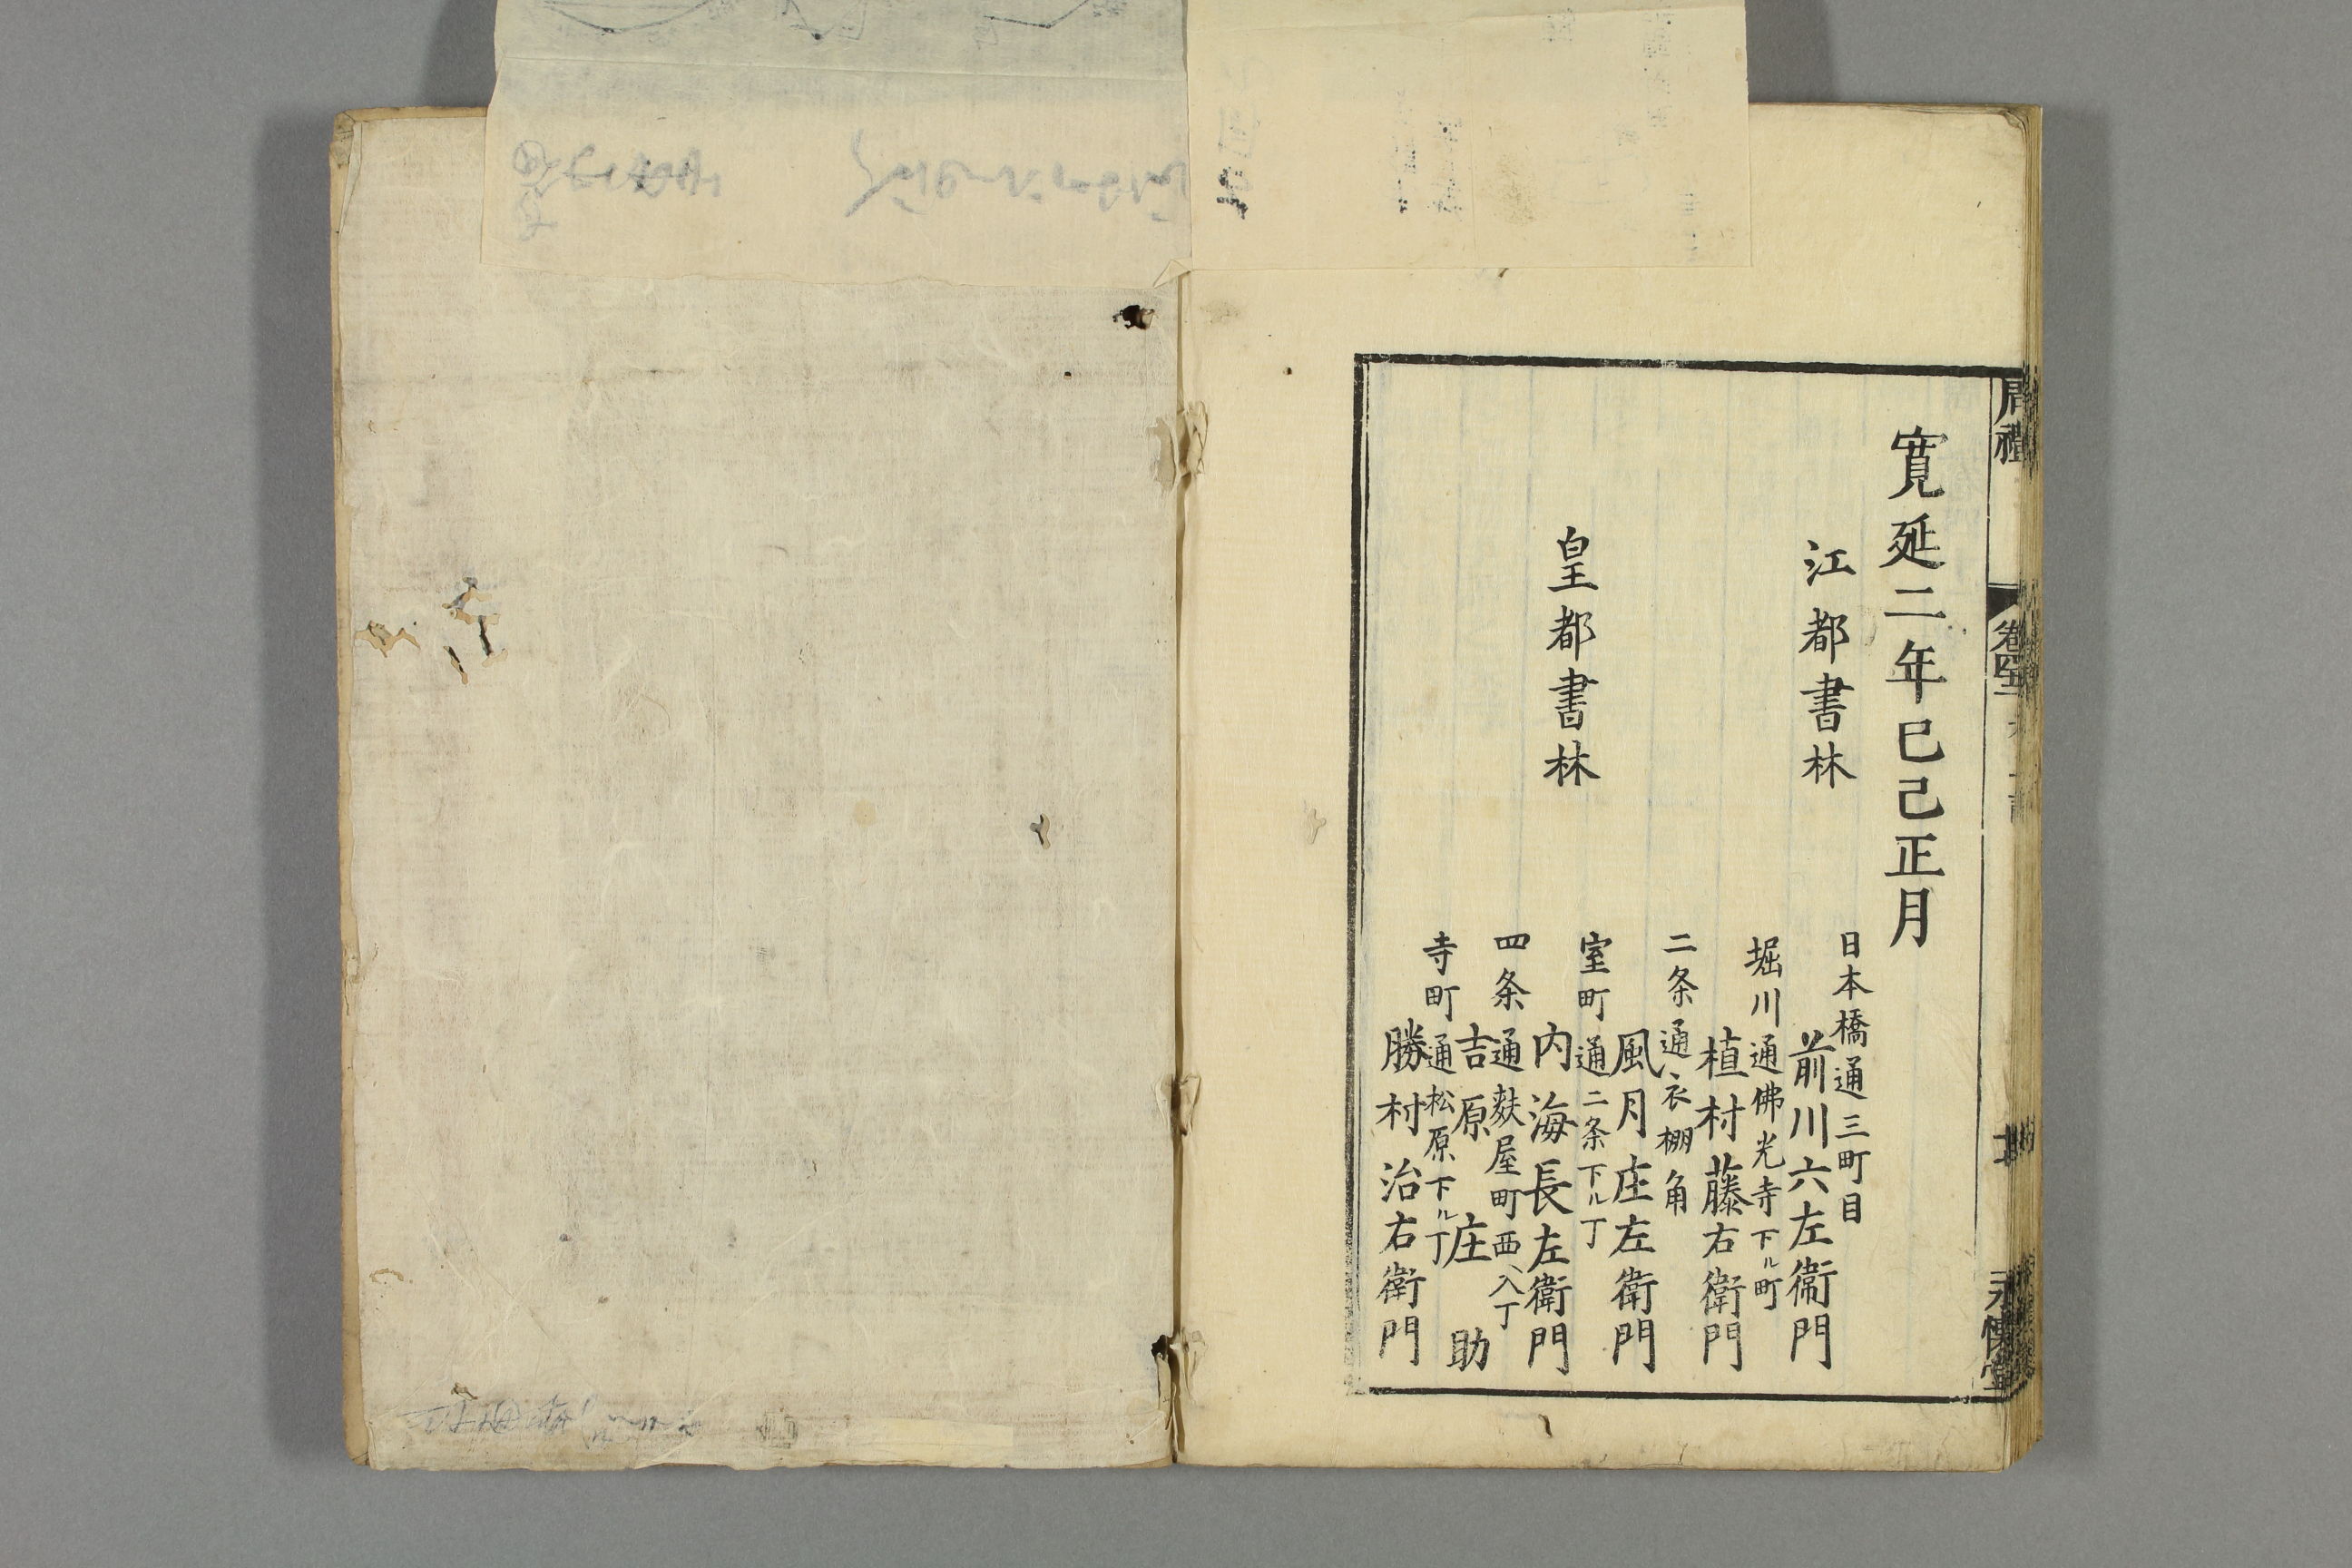 周禮
卷四十二
永懷堂
寛延二年巳己正月
江都書林
日本橋通三町目
前川六左衛門
皇都書林
堀川通佛光寺下ル町
植村藤右衛門
二条通衣棚角
風月庄左衛門
室町通二条下ル丁
内海長左衛門
四条通麩屋町西ヘ入丁
吉原庄助
寺町通松原下ル丁
勝村治右衛門